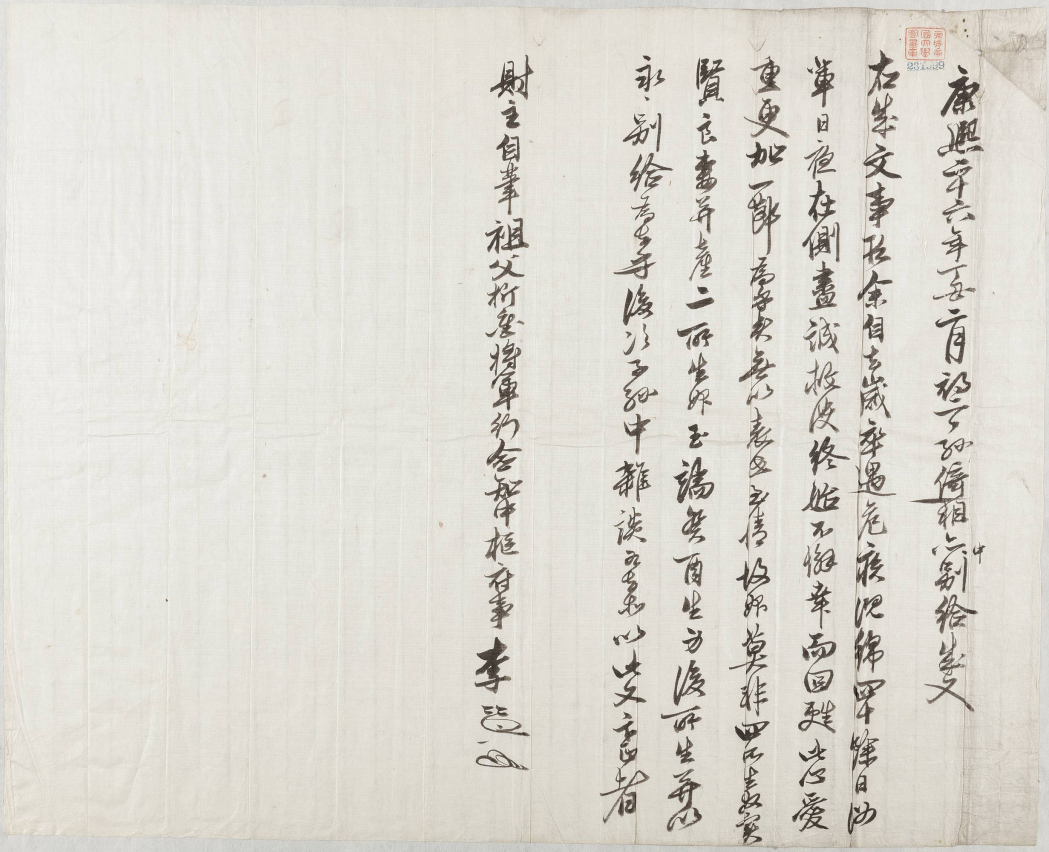 康熙卅六年丁丑二月初二日孫倚相亦中別給成文
右成文事段余自去歲卒遇危疾沉綿四十餘日汝
輩日夜在側盡誠救護終始不懈幸而回甦此心愛
重更加一節爲乎矣無以表吾至情故婢莫非四所生奴實
賢良妻幷産二所生婢玉端癸酉生身後所生幷以
永永別給爲去乎後次子孫中雜談爲去等以此文憑者
財主自筆祖父折衝將軍行僉知中樞府事李